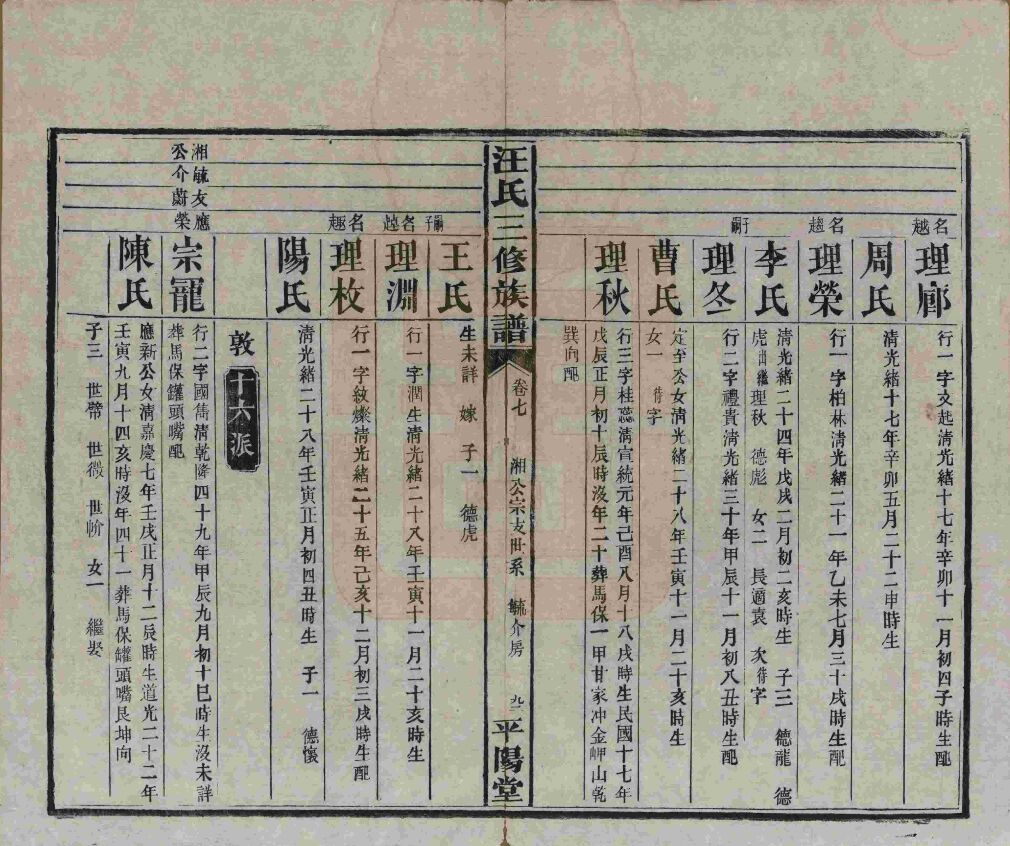 名越
理廊
行一字文起清光緒十七年辛卯十一月初四子時生配
周氏
清光緒十七年辛卯五月二十二申時生
名趨
理榮
行一字柏林清光緒二十一年乙未七月三十戌時生配
子嗣
李氏
清光緒二十四年戊戌二月初二亥時生 子三 德龍 德
虎出繼理秋 德彪 女二 長適袁 次待字
理冬
行二字禮貴清光緒三十年甲辰十一月初八丑時生配
曹氏
定至公女清光緒二十八年壬寅十一月二十亥時生
女一 待字
理秋
行三字桂蕊清宣統元年己酉八月十八戌時生民國十七年
戊辰正月初十辰時沒年二十葬馬保一甲甘家冲金岬山乾
巽向配
汪氏三修族譜
卷七
湘公宗支世系 毓介房
九二
平陽堂
嗣子
王氏
生未詳 嫁 子一 德虎
名越
理淵
行一字潤生清光緒二十八年壬寅十一月二十亥時生
名趣
理枚
行一字紋燦清光緒二十五年己亥十二月初三戌時生配
陽氏
清光緒二十八年壬寅正月初四丑時生 子一 德懷
敦十六派
湘毓友應
公介蔚榮
宗寵
行二字國雋清乾隆四十九年甲辰九月初十巳時生沒未詳
葬馬保罐頭嘴配
陳氏
應新公女清嘉慶七年壬戌正月十二辰時生道光二十二年
壬寅九月十四亥時沒年四十一葬馬保罐頭嘴艮坤向
子三 世譬 世微 世 女一 繼娶